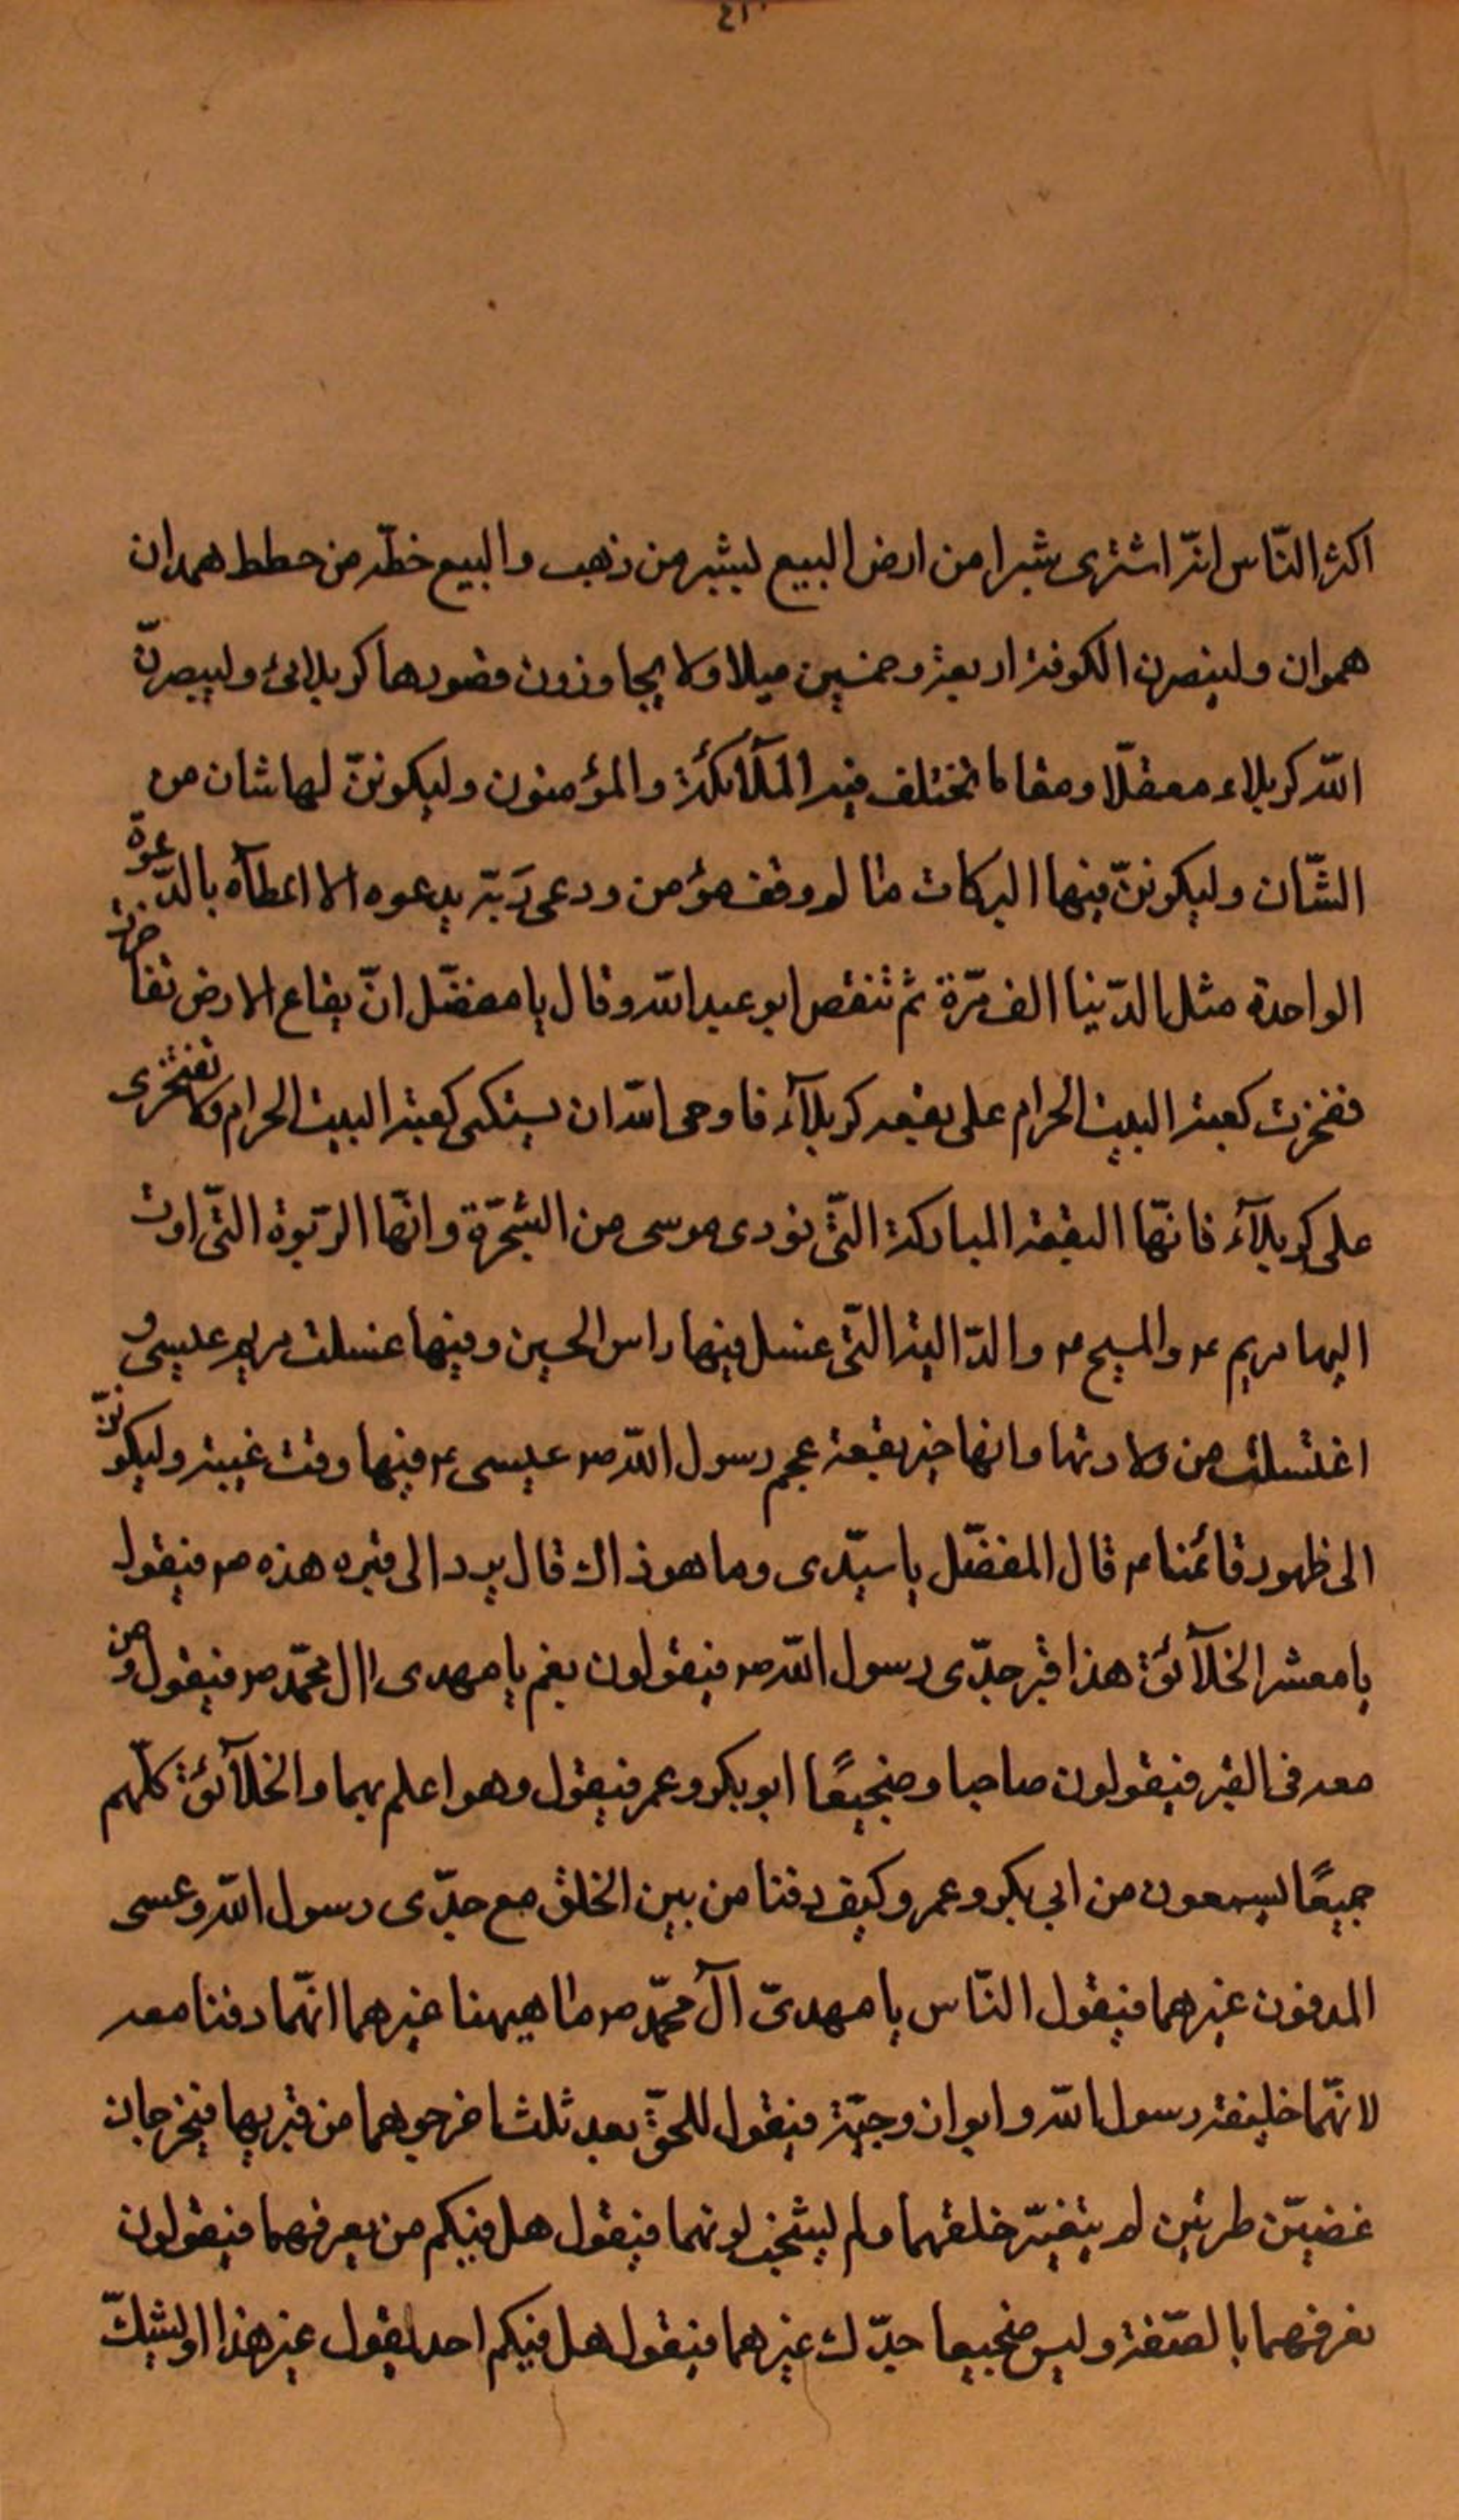 اكثر النّاس انّه اشترى شبرا من ارض البيع لبشبر من ذهب والبيع خطّه من حطط همدان
هموان وليصرن الكوفة اربعة وخمسين ميلا ولا يجاوزون قصورها كربلائ وليصرنّ
الله كربلاء معقلّا ومقاما تختلف فيه الملآئكة والمؤمنون وليكوننّ لها شان من
الشّان وليكوننّ فيها البركات ما لو وقف مؤمن ودعى رَبّه يدعوه الا اعطآه بالدّعوة
الواحدة مثل الدّينا الف مّرة ثم تنفص ابو عبد الله وقال يا مفضّل انّ بقاع الارض تفاخرت
ففخرت كعبة البيت الحرام على بقعه كربلآء فاوحى الله ان يسكى كعبة البيت الحرام ولا تفتخرى
على كربلآء فانّها البقعة المباركة التّى نودى موسى من الشجّرة وانّها الرّبوة التّى اوت
اليها مريم ع والمسيح ع والدّالية التّى غسل فيها راس الحسين وفيها غسلت مريم عليسى و
اغتسلت من ولادتها وانها خير بقعة عجم رسول الله ص عيسى ع فيها وقت غيبة وليكوننّ
الى ظهور قائمنا ع قال المفضّل يا سيّدى وما هو ذاك قال يرد الى قبره هذه ص فيقول
يا معشر الخلآئق هذا قبر جدّى رسول الله ص فيقولون نعم يا مهدى اال محمّد ص فيقول ومن
معه فى القبر فيقولون صاحبا وضجيعًا ابو بكر وعمر فيقول وهو اعلم بهما والخلآئق كلّهم
جميعًا يسمعون من ابى بكر وعمر وكيف دفنا من بين الخلق مع جدّى رسول الله وعسى
المدفون غيرهما فيقول النّاس يا مهدىّ آل محمّد ص ما هيهنا غيرهما انهّما دفنا معه
لانهّما خليفة رسول الله وابوان وجيّة فيقول للحقّ بعد ثلث اخرجوهما من قبريهما فيخرجان
غضيّن طرئين لم يتغيّر خلقهما ولم ليشخب لونهما فيقول هل فيكم من يعرفهما فيقولون
نعرفهما بالصّفة وليس ضجيعا جدّك غيرهما فيقول هل فيكم احد يقول غير هذا او ليشكّ